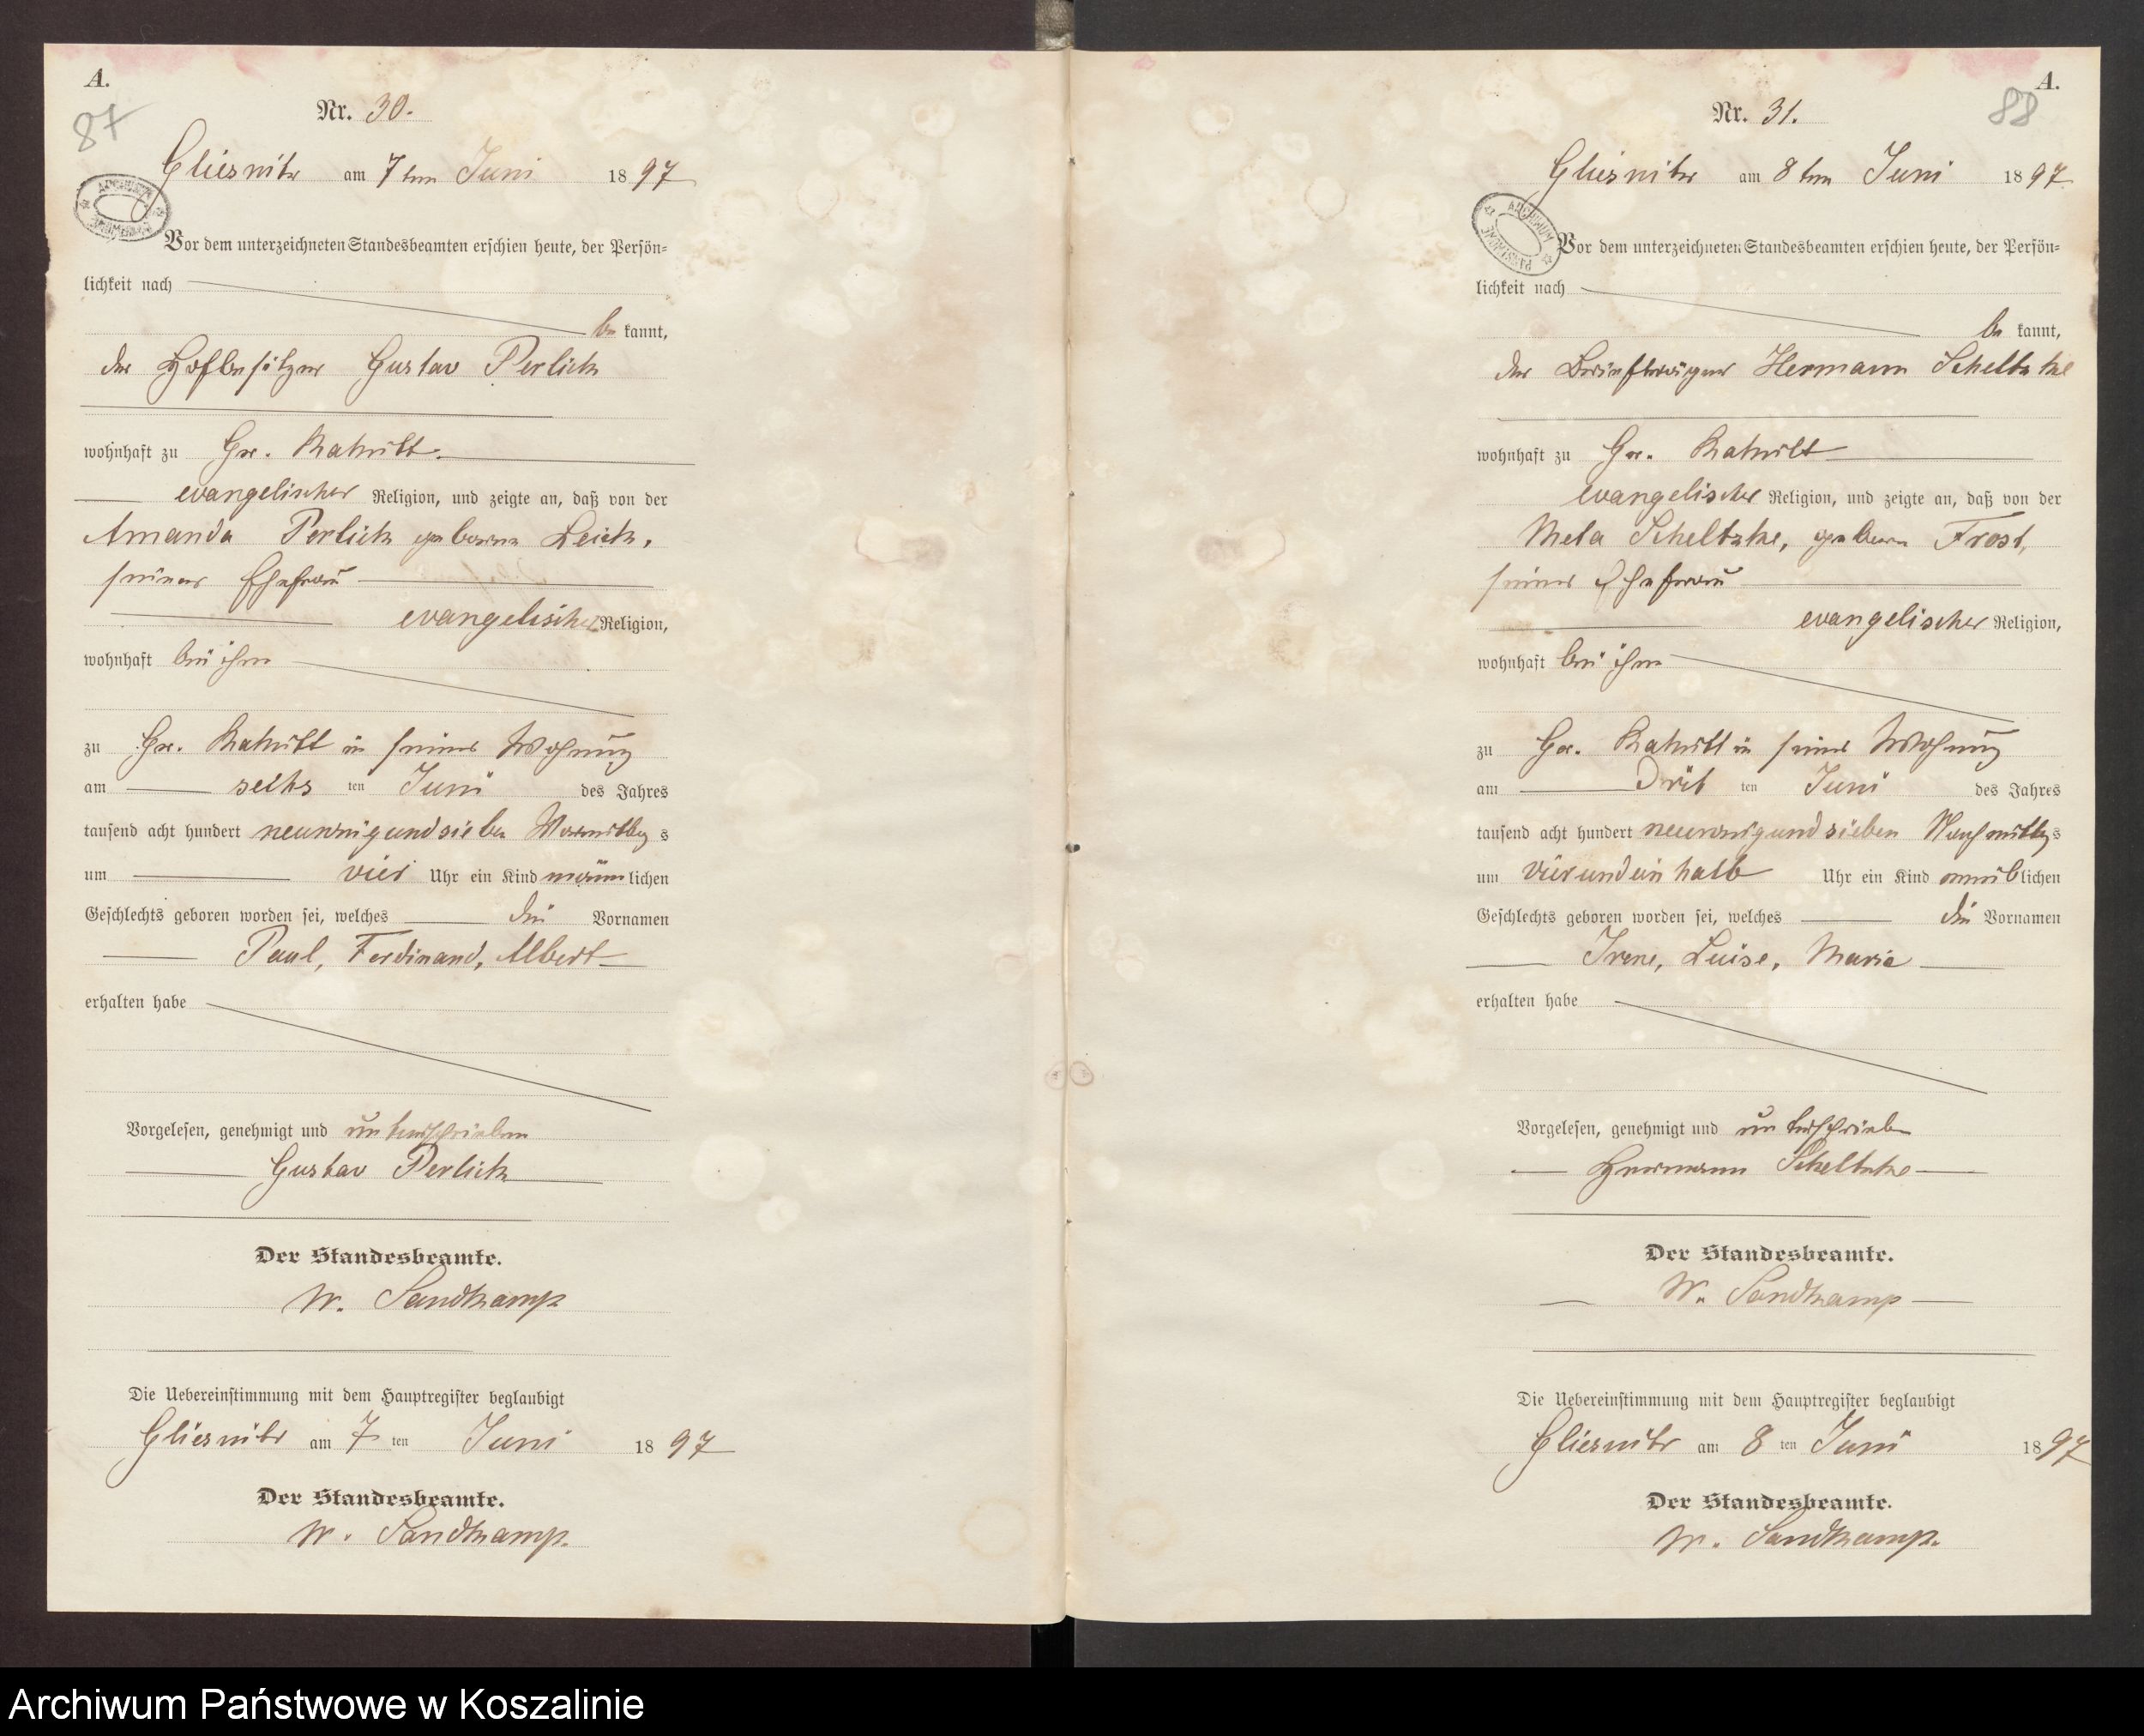 A.
87
Nr. 30.
Gliesnitz am 7ten Juni 1897
ARCHIWUM
Vor dem unterzeichneten Standesbeamten erschien heute, der Persön-
lichkeit nach
be kannt,
der Hofbesitzer Gustav Perlick
wohnhaft zu Gr. Rakitt.
evangelischer Religion, und zeigte an, daß von der
Amanda Perlick geborne Leick,
seiner Ehefrau
evangelischer Religion,
wohnhaft bei ihm
zu Gr. Rakitt in seiner Wohnung
am sechs ten Juni des Jahres
tausend acht hundert neunzigundsieben Vormittags
um vier Uhr ein Kind männlichen
Geschlechts geboren worden sei, welches die Vornamen
Paul, Ferdinand, Albert
erhalten habe
Vorgelesen, genehmigt und unterschrieben
Gustav Perlick
Der Standesbeamte.
W. Sandkamp
Die Uebereinstimmung mit dem Hauptregister beglaubigt
Gliesnitz am 7 ten Juni 1897
Der Standesbeamte.
W. Sandkamp.
A.
88
Nr. 31.
Gliesnitz am 8ten Juni 1897.
ARCHIWUM PAŃSTWOWE
Vor dem unterzeichneten Standesbeamten erschien heute, der Persön-
lichkeit nach
be kannt,
der Briefträger Hermann Scheltzke
wohnhaft zu Gr. Rakitt
evangelischer Religion, und zeigte an, daß von der
Meta Scheltzke, geborn Frost,
seiner Ehefrau
evangelischer Religion,
wohnhaft bei ihm
zu Gr. Rakitt in seiner Wohnung
am Drit ten Juni des Jahres
tausend acht hundert neunzigundsieben Nachmittags
um vierundein halb Uhr ein Kind weiblichen
Geschlechts geboren worden sei, welches die Vornamen
Irene, Luise, Marie
erhalten habe
Vorgelesen, genehmigt und unterschrieben
Hermann Scheltzke
Der Standesbeamte.
W. Sandkamp
Die Uebereinstimmung mit dem Hauptregister beglaubigt
Gliesnitz am 8 ten Juni 1897
Der Standesbeamte.
W. Sandkamp.
Archiwum Państwowe w Koszalinie